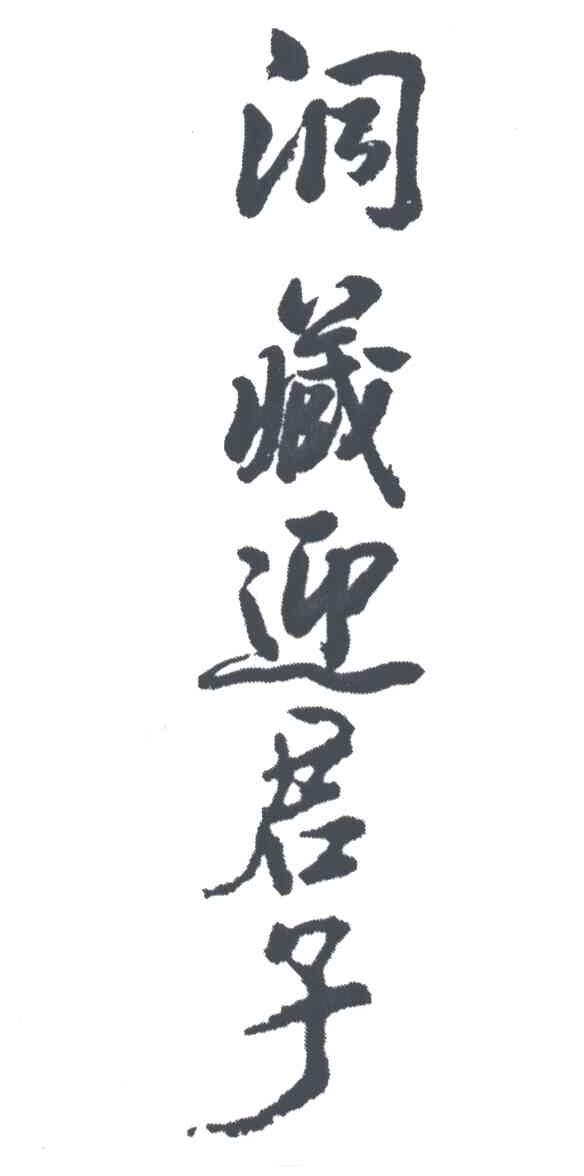 洞藏迎君子